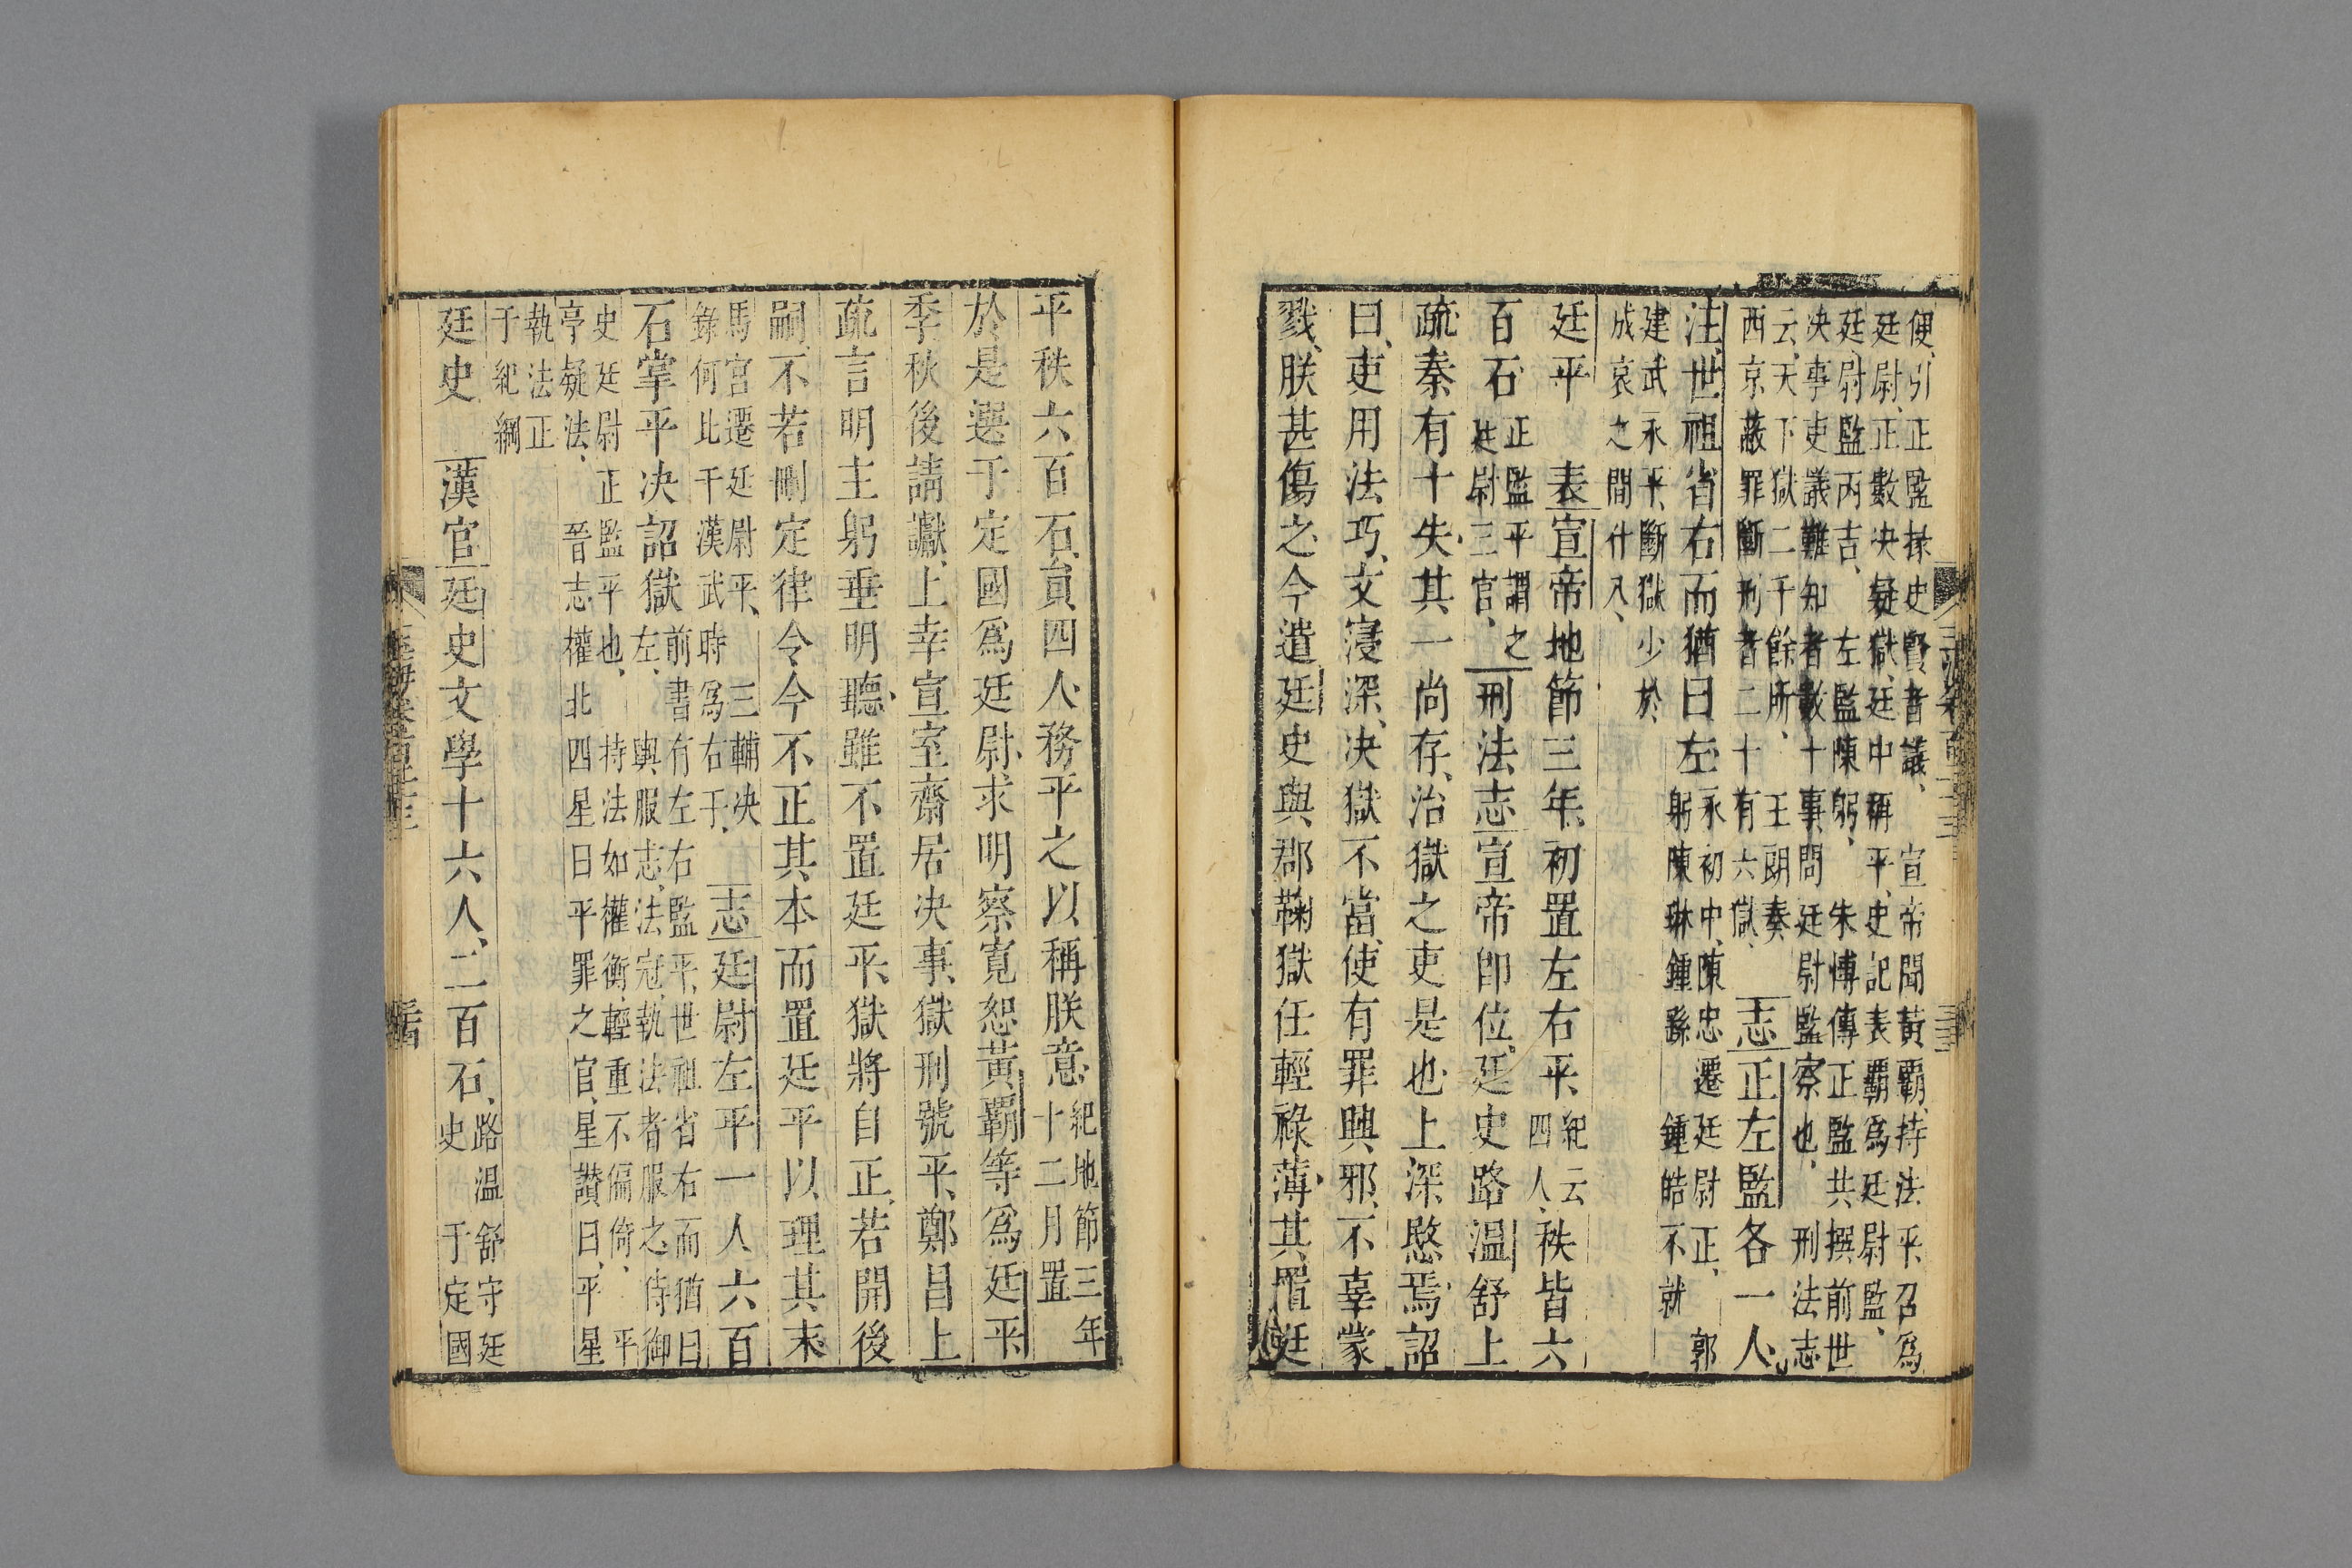 便、引正監掾史賢者議、 宣帝聞黃覇、持法平、召爲
廷尉、正數決疑獄、廷中稱平、史記表覇爲廷尉監、
廷尉監丙吉、 左監陳躬、 朱博傳正監共撰前世
决事吏議難知者數十事、問廷尉監察也、 刑法志
云、天下獄二千餘所、 王朗奏
西京蔽罪斷刑者二十有六獄、
志正左監各一人、
注、世祖省右而猶曰左、
永初中、陳忠遷廷尉正、 郭
躬陳琳鍾繇 鍾皓不就
建武永平、斷獄少於、
成哀之間什八、
廷平 表宣帝地節三年、初置左右平、
紀云
四人、
秩皆六
百石、
正監平謂之
廷尉三官、
刑法志宣帝卽位、廷史路溫舒上
疏、秦有十失、其一尚存、治獄之吏是也、上深愍焉、詔
曰、吏用法巧、文寖深、决獄不當、使有罪興邪、不辜蒙
戮、朕甚傷之、今遣廷史與郡鞠獄任輕祿薄、其置廷
平秩六百石、員四人、務平之、以稱朕意、
紀地節三年
十二月置
於是選于定國爲廷尉、求明察寬恕黃覇等爲廷平、
季秋後請讞、上幸宣室齋居决事、獄刑號平、鄭昌上
疏言明主躬垂明聽、雖不置廷平、獄將自正、若開後
嗣、不若刪定律令、今不正其本而置廷平以理其末、
馬宮遷廷尉平、 三輔决
錄何比干漢武時爲右于、
志廷尉左平一人六百
石掌平决詔獄
前書有左右監平、世祖省右而猶曰
左、 輿服志、法冠、執法者服之、侍御
史廷尉正監平也、 持法如權衡、輕重不偏倚、 平
亭疑法、 晉志權北四星曰平罪之官、星讃曰、平星
執法正
于紀綱
廷史 漢官廷史文學十六人、二百石、
路溫舒守廷
史 于定國